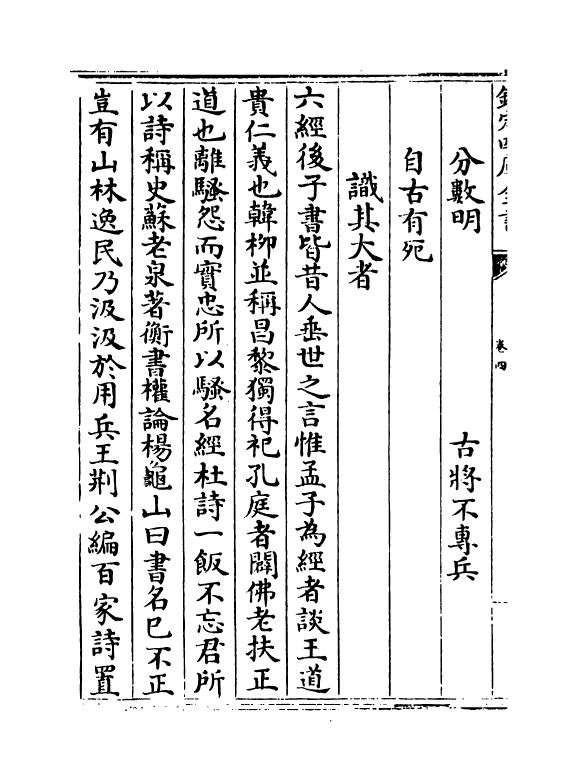 欽定四庫全書
卷四
分數明　古將不專兵
自古有死
識其大者
六經後子書皆昔人垂世之言惟孟子為經者談王道
貴仁義也韓柳並稱昌黎獨得祀孔庭者闢佛老扶正
道也離騷怨而實忠所以騷名經杜詩一飯不忘君所
以詩稱史蘇老泉著衡書權論楊龜山曰書名已不正
豈有山林逸民乃汲汲於用兵王荆公編百家詩置